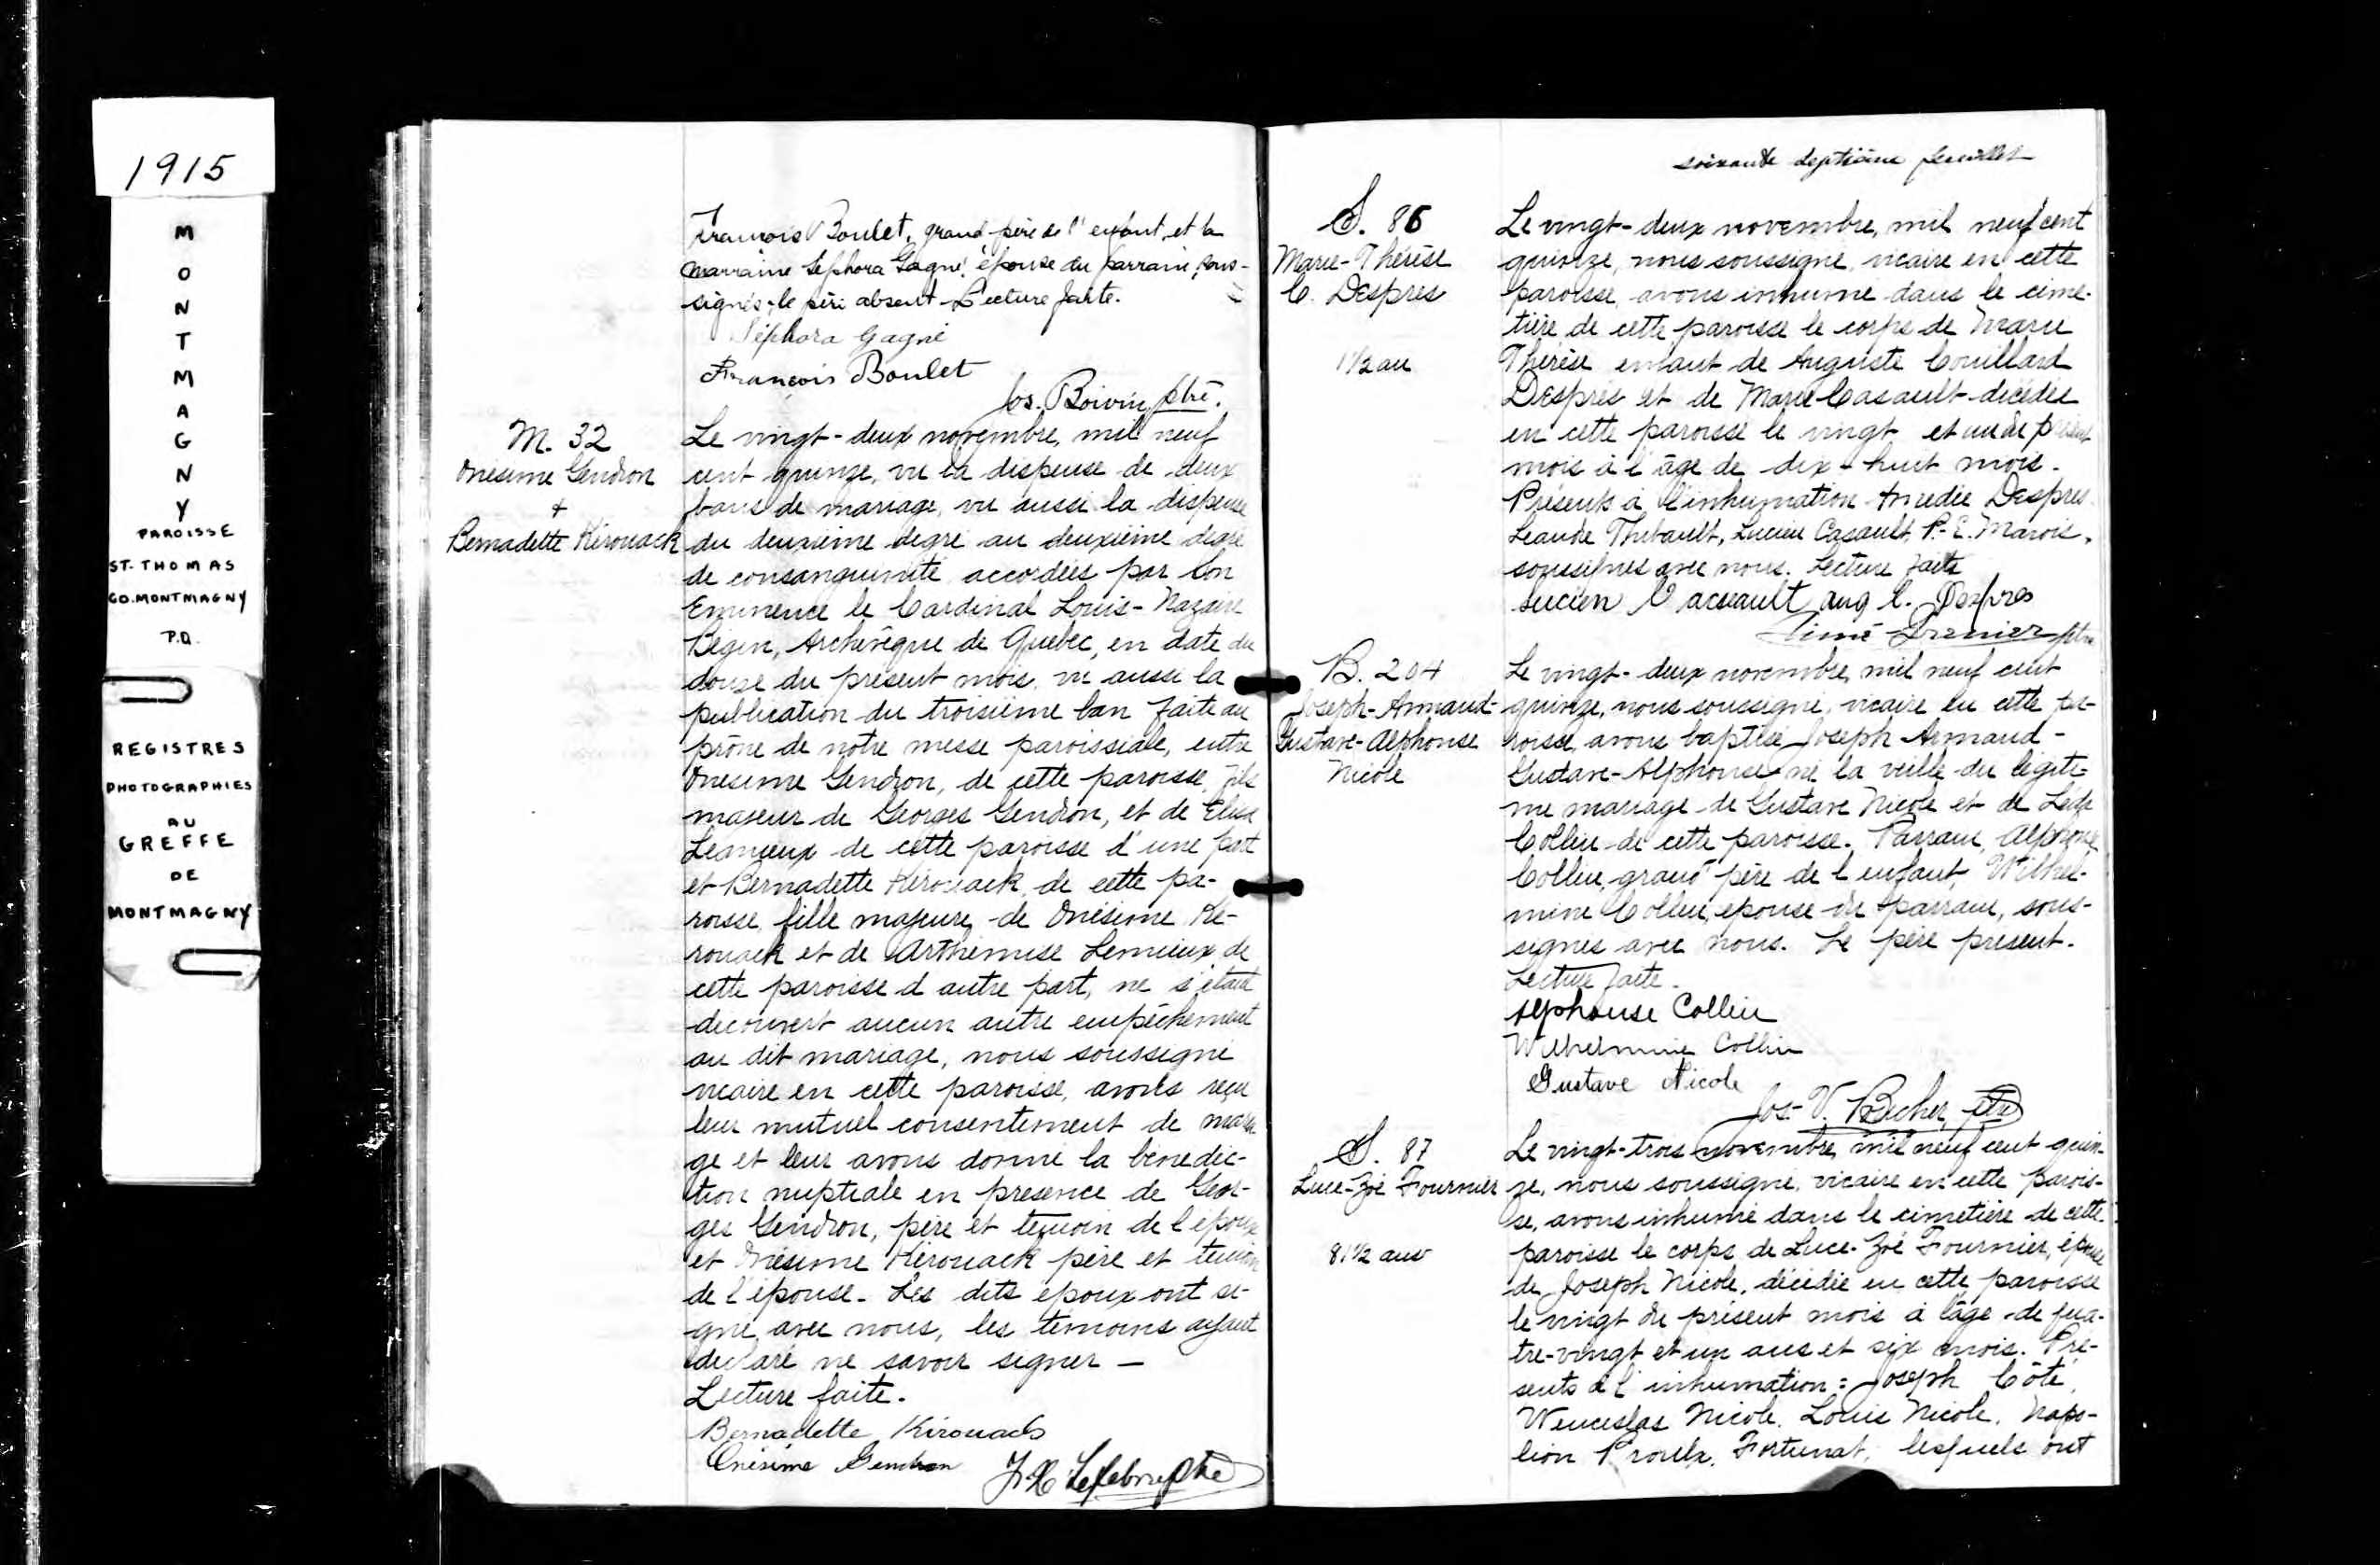 1915
MONTMAGNY
PAROISSE
ST-THOMAS
CO. MONTMAGNY
P.Q.
REGISTRES
PHOTOGRAPHIES
AU
GREFFE
DE
MONTMAGNY
François Boulet, grand-père de l'enfant, et la
marraine Sephora Gagné, épouse du parrain, sous-
signés, le père absent. Lecture faite.
Séphora Gagné
François Boulet
Jos. Boivin, ptre.
M. 32
Onésime Gendron
&
Bernadette Kirouack
Le vingt-deux novembre, mil neuf
cent quinze, vu la dispense de deux
bans de mariage, vu aussi la dispense
du deuxième degré au deuxième degré
de consanguinité accordées par Son
Eminence le Cardinal Louis-Nazaire
Bégin, Archevêque de Québec, en date du
douze du présent mois, vu aussi la
publication du troisième ban faite au
prône de notre messe paroissiale, entre
Onesime Gendron, de cette paroisse, fils
majeur de Georges Gendron, et de Elise
Lemieux de cette paroisse d'une part
et Bernadette Kérouack, de cette pa-
roisse, fille majeure, de Onésime Ké-
rouack et de Arthémise Lemieux de
cette paroisse d'autre part, ne s'étant
découvert aucun autre empêchement
au dit mariage, nous soussigné
vicaire en cette paroisse, avons reçu
leur mutuel consentement de maria
ge et leur avons donné la bénédic-
tion nuptiale en présence de Geor-
ges Gendron, père et témoin de l'époux
et Onésime Kérouack père et témoin
de l'épouse. Les dits époux ont si-
gné avec nous, les témoins ayant
déclaré ne savoir signer —
Lecture faite.
Bernadette Kirouack
Onésime Gendron
J. H. Lefebvre ptre
soixante septième feuillet
S. 86
Marie-Thérèse
C. Després
1 1/2 an
Le vingt-deux novembre, mil neuf cent
quinze, nous soussigné, vicaire en cette
paroisse, avons inhumé dans le cime-
tière de cette paroisse le corps de Marie
Thérèse enfant de Auguste Couillard
Després et de Marie Casault décédée
en cette paroisse le vingt et un du présent
mois à l'âge de dix-huit mois.
Présents à l'inhumation Amédée Després
Léandre Thibault, Lucien Casault, P.-E. Marois,
soussignés avec nous. Lecture faite
Lucien Casault aug C. Després
Aimé Grenier ptre
B. 204
Joseph-Armand-
Gustave-Alphonse
Nicole
Le vingt-deux novembre, mil neuf cent
quinze, nous soussigné, vicaire en cette pa-
roisse, avons baptisé Joseph Armand-
Gustave-Alphonse né la veille du légiti-
me mariage de Gustave Nicole et de Léda
Collin de cette paroisse. Parrain, Alphonse
Collin, grand père de l'enfant, Wilhel-
mine Collin, épouse du parrain, sous-
signés avec nous. Le père présent.
Lecture faite.
Alphonse Collin
Wilhelmine Collin
Gustave Nicole
Jos. V. ptre
S. 87
Luce-Zoé Fournier
81 1/2 ans
Le vingt-trois novembre, mil neuf cent quin-
ze, nous soussigné, vicaire en cette parois-
se, avons inhumé dans le cimetière de cette
paroisse le corps de Luce-Zoé Fournier, épouse
de Joseph Nicole, décédée en cette paroisse
le vingt du présent mois à l'âge de qua-
tre-vingt et un ans et six mois. Pré-
sents à l'inhumation: Joseph Côté,
Wenceslas Nicole, Louis Nicole, Napo-
léon Proulx, Fortunat, lesquels ont